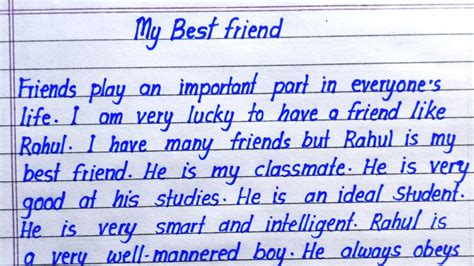 My Best friend
Friends play an important part in everyone's
life. I am very lucky to have a friend like
Rahul. I have many friends but Rahul is my
best friend. He is my classmate. He is very
good at his studies. He is an ideal Student.
He is very smart and intelligent. Rahul is
a very well-mannered boy. He always obeys